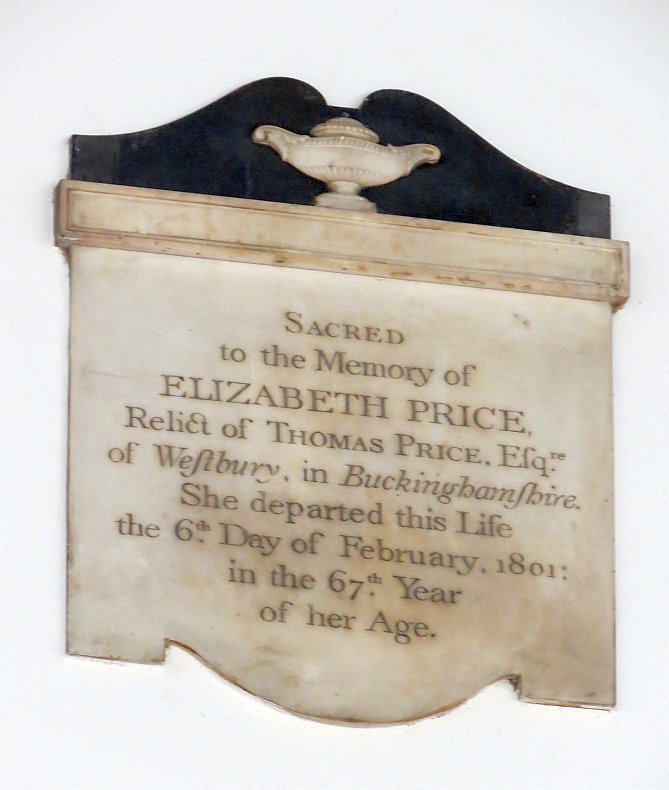 SACRED
to the Memory of
ELIZABETH PRICE,
Relict of THOMAS PRICE, Eſq.re
of Weſtbury, in Buckinghamſhire.
She departed this Life
the 6.th Day of February, 1801:
in the 67.th Year
of her Age.